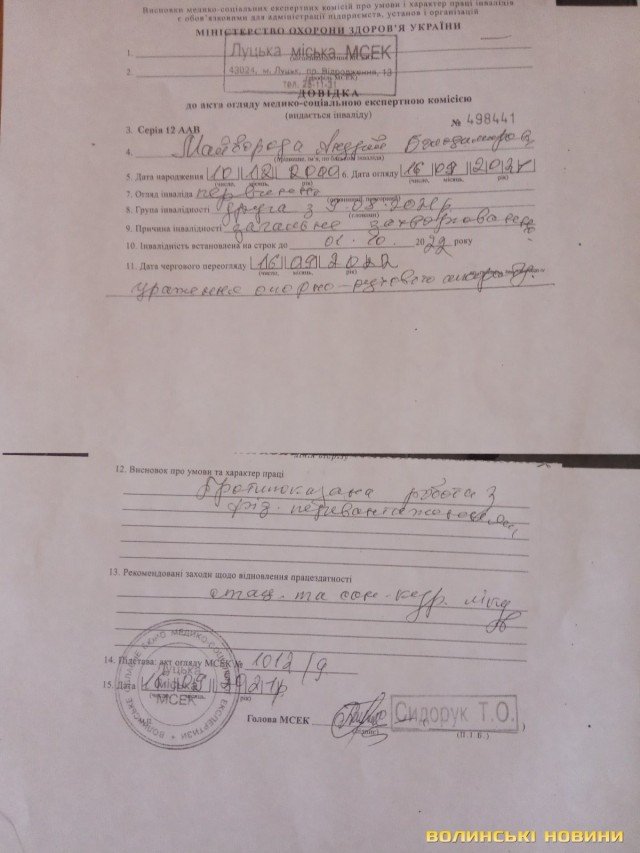 Висновки медико-соціальних експертних комісій про умови і характер праці інвалідів
є обов'язковими для адміністрації підприємств, установ і організацій
МІНІСТЕРСТВО ОХОРОНИ ЗДОРОВ'Я УКРАЇНИ
1. Луцька міська МСЕК
43024, м. Луцьк, пр. Відродження, 13
2.
тел. 25-11-31
ДОВІДКА
до акта огляду медико-соціальною експертною комісією
(видається інваліду)
3. Серія 12 ААВ № 498441
4. Майборода Андрій
(прізвище, ім'я, по батькові інваліда)
5. Дата народження 10 12 6. Дата огляду 16 09 2021
(число, місяць, рік) (число, місяць, рік)
7. Огляд інваліда первинно
8. Група інвалідності друга з
(словами)
9. Причина інвалідності загальне захворювання
10. Інвалідність встановлена на строк до 01. 10. 2022 року
11. Дата чергового переогляду 16 09 2022
(число, місяць, рік)
ураження опорно-рухового апарату
12. Висновок про умови та характер праці
Протипоказана робота з
фіз. перевантаженнями
13. Рекомендовані заходи щодо відновлення працездатності
стац. та сан.-кур. лік
14. Підстава: акт огляду МСЕК № 1012/9
15. Дата 16 09 2021р
(число, місяць, рік)
ЛУЦЬКА
МІСЬКА
МСЕК
Голова МСЕК Сидорук Т.О.
(підпис) (П.І.Б.)
ВОЛИНСЬКІ НОВИНИ